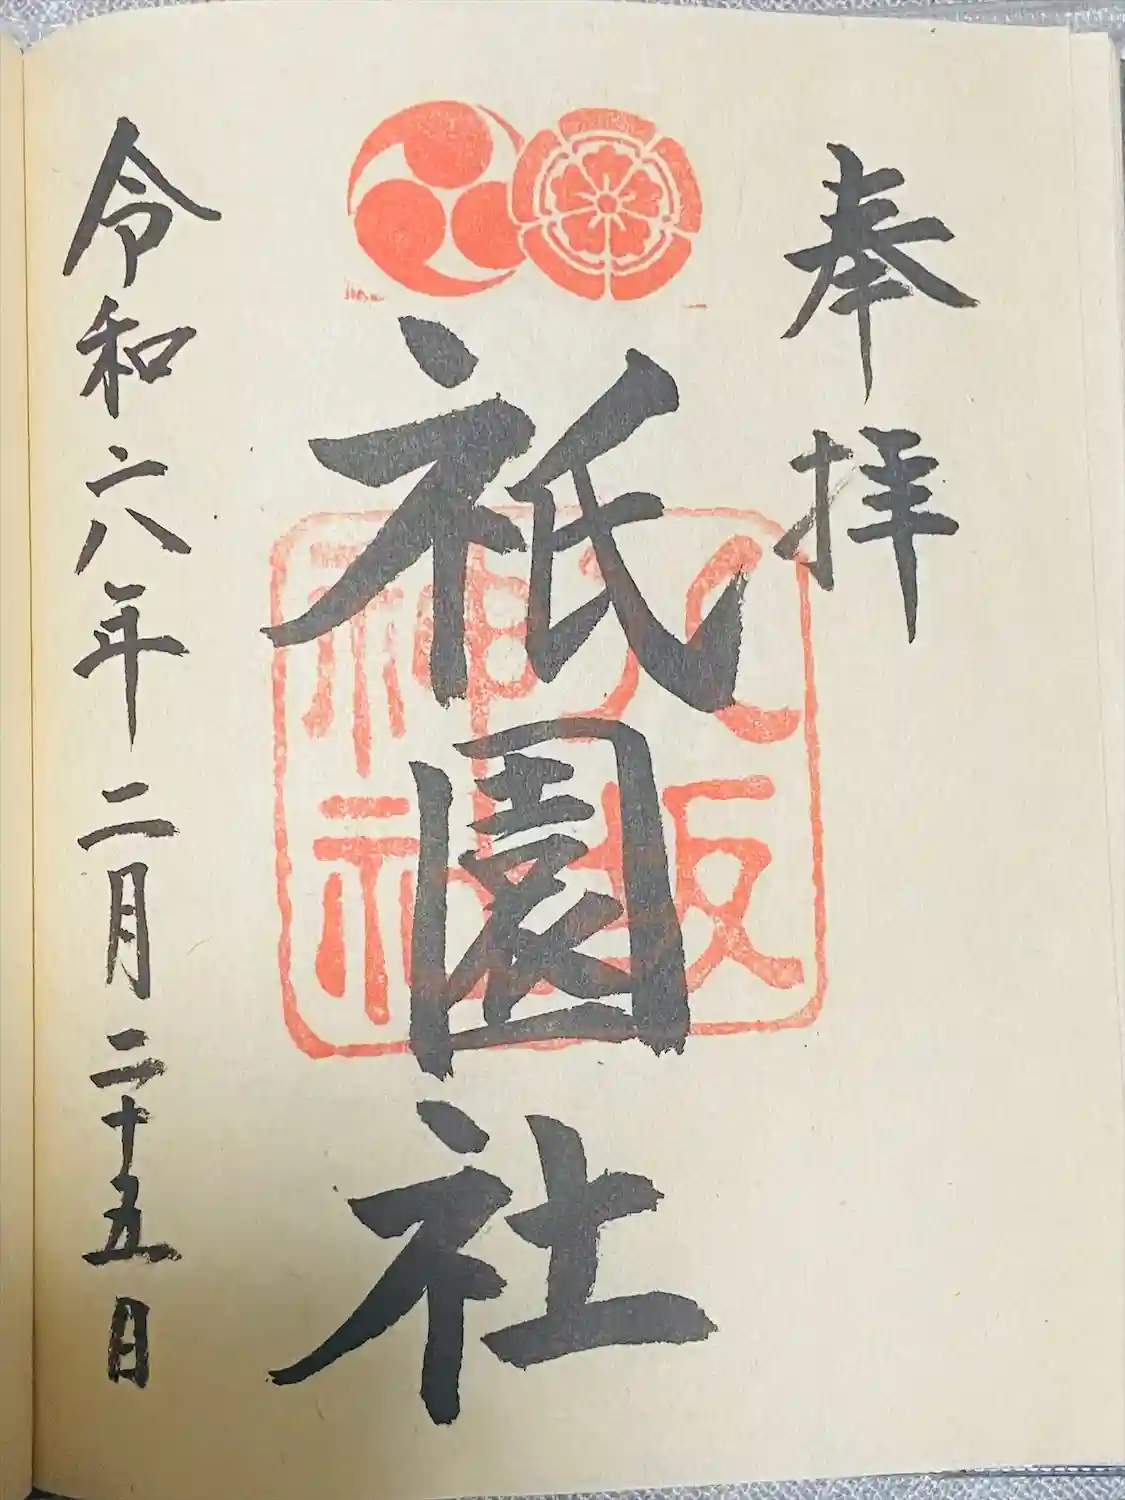 奉拝
祇園社
八坂
神社
令和六年二月二十五日